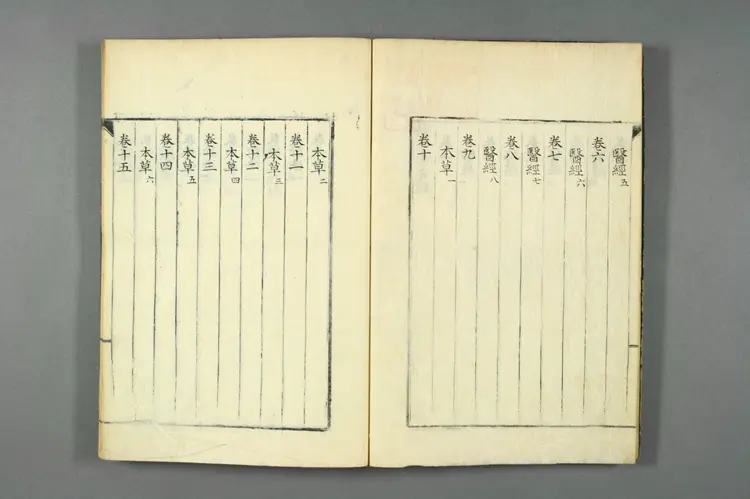 醫經五
卷六
醫經六
卷七
醫經七
卷八
醫經八
卷九
本草一
卷十
本草二
卷十一
本草三
卷十二
本草四
卷十三
本草五
卷十四
本草六
卷十五